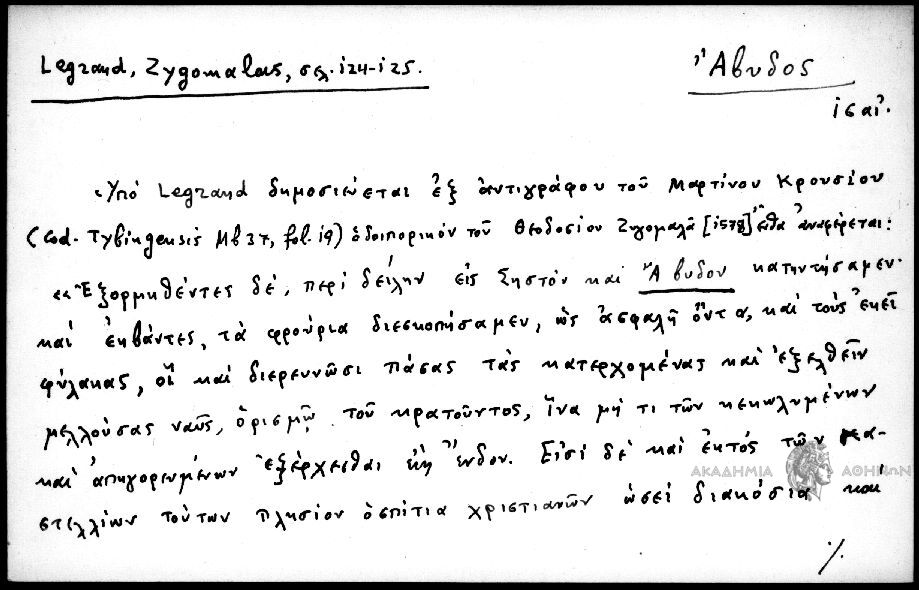 Legrand, Zygomalas, σελ. 124-125.
Ἄβυδος
ις αἰ.
Ὑπό Legrand δημοσιεύεται ἐξ ἀντιγράφου τοῦ Μαρτίνου Κρουσίου
(cod. Tybingensis Mb 37, fol. 19) ὁδοιπορικόν τοῦ Θεοδοσίου Ζυγομαλᾶ [1578] ἔνθα ἀναφέρεται:
«Ἐξορμηθέντες δέ, περί δείλην εἰς Σηστόν καί Ἄβυδον κατηντήσαμεν·
καί ἐκβάντες, τά φρούρια διεσκοπήσαμεν, ὡς ἀσφαλῆ ὄντα, καί τούς ἐκεῖ
φύλακας, οἵ καί διερευνῶσι πάσας τάς κατερχομένας καί ἐξελθεῖν
μελλούσας ναῦς, ὁρισμῷ τοῦ κρατοῦντος, ἵνα μή τι τῶν κεκωλυμένων
καί ἀπηγορευμένων ἐξέρχεσθαι ᾖ ἔνδον. Εἰσί δέ καί ἐκτός τῶν κα-
στελλίων τούτων πλησίον ὁσπίτια χριστιανῶν ὡσεί διακόσια καί
./.
ΑΚΑΔΗΜΙΑ ΑΘΗΝΩΝ